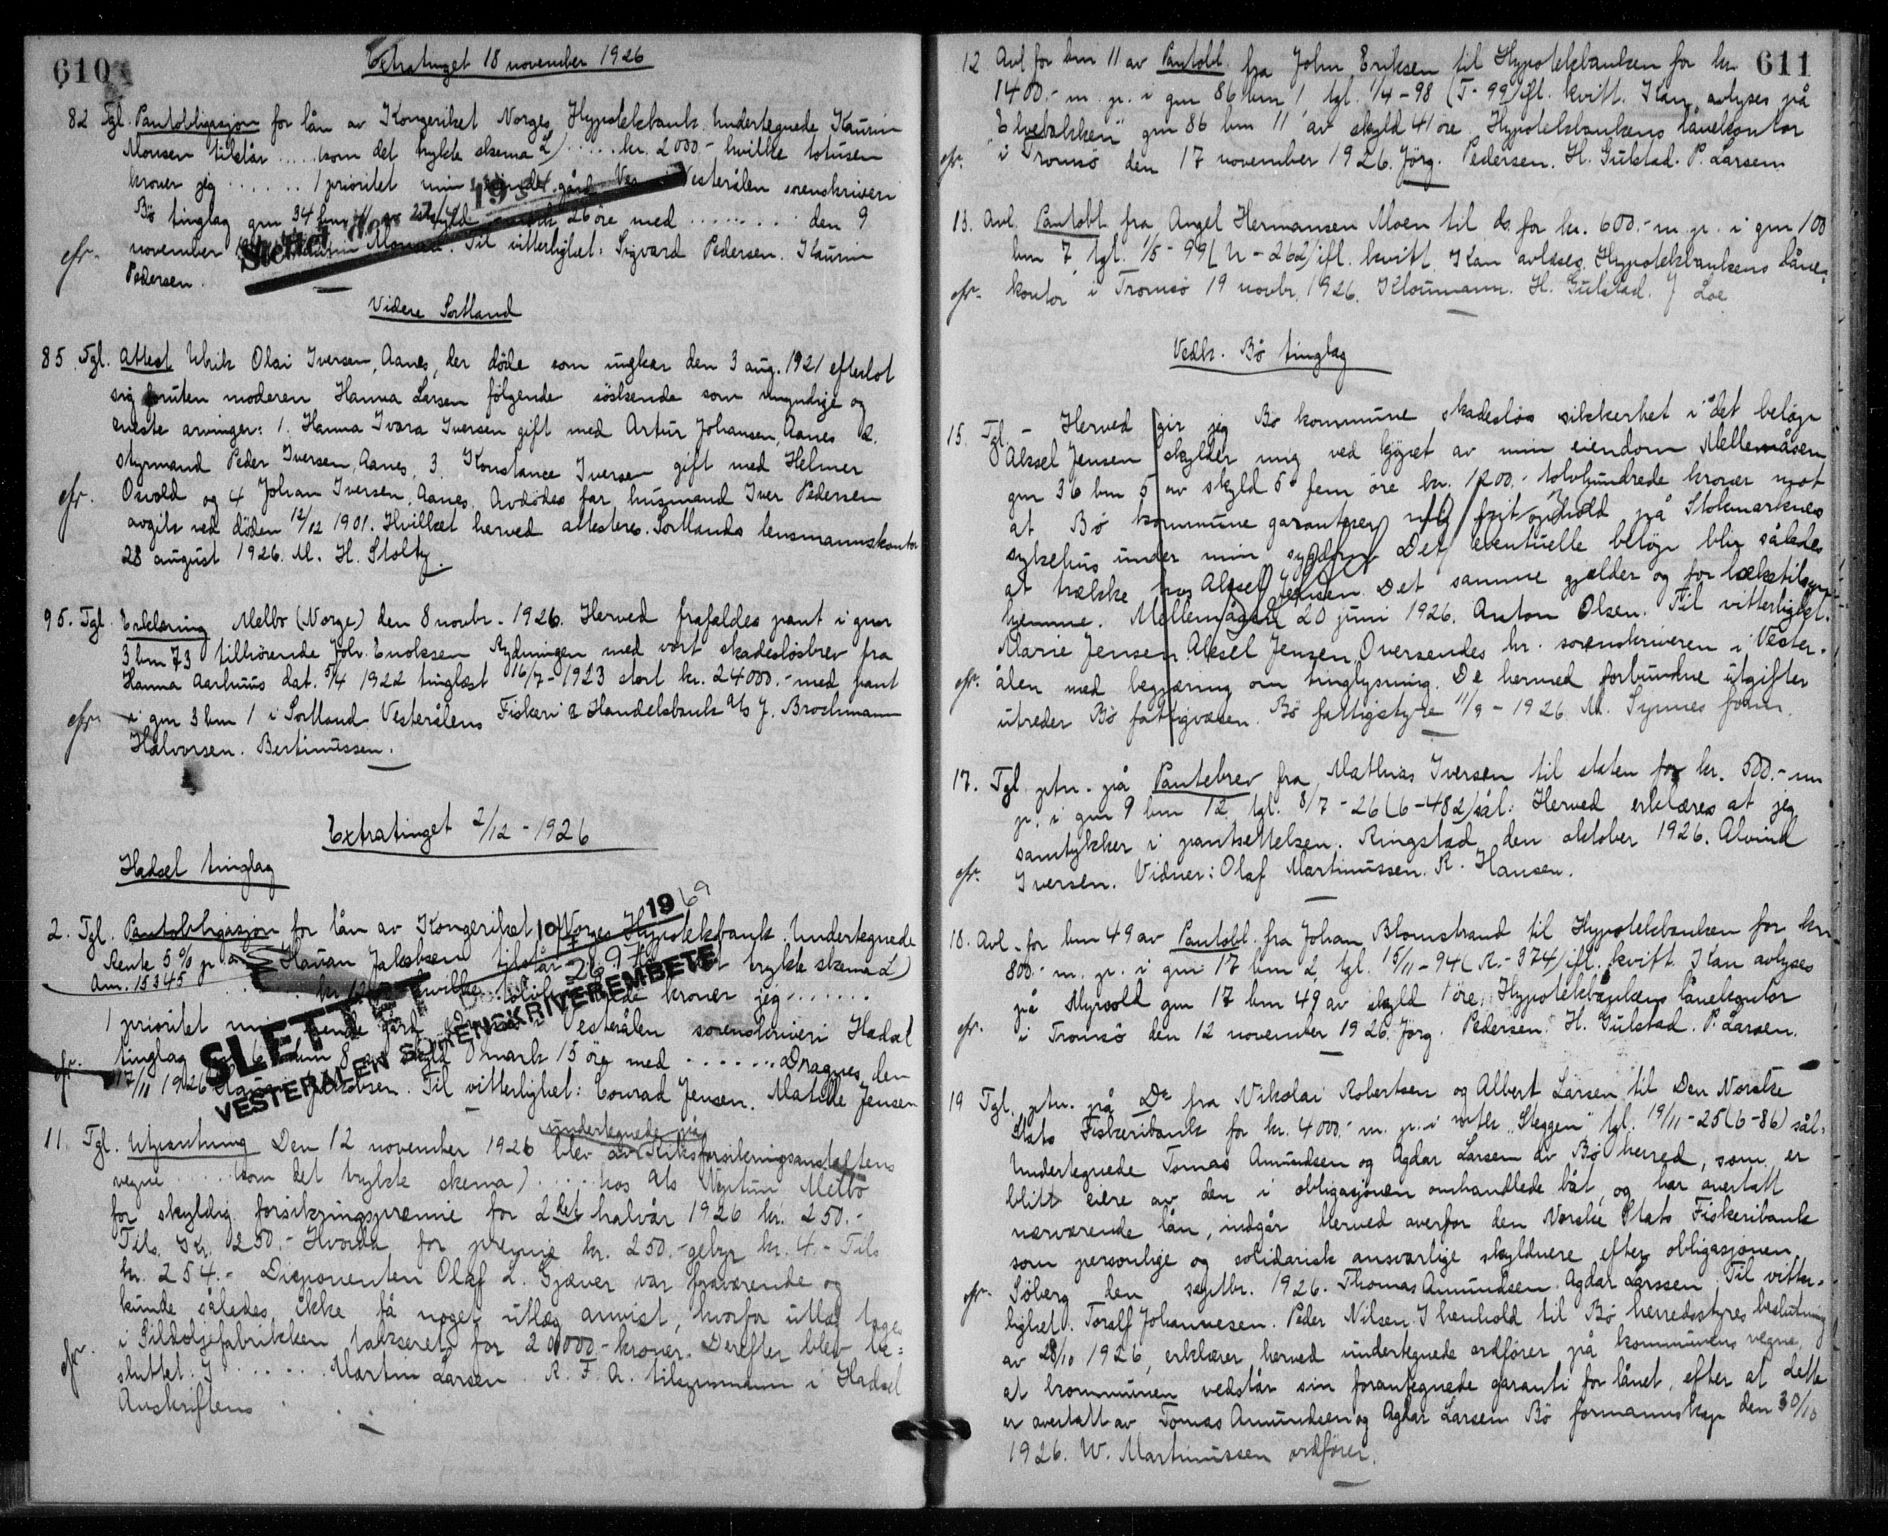 610
Extratinget 18 november 1926
82. Tgl. Pantobligasjon for lån av Kongeriket Norges Hypotekbank. Undertegnede Kaurin
Monsen tilstår ..... (som det trykte skema L) ..... kr. 2000.- hvilke totusen
kroner jeg ....... 1 prioritet min gård i Vesterålen sorenskriveri
Bö tinglag gnr 34 bnr av skyld mark 26 öre med ......... den 9
november Kaurin Monsen. Til vitterlighet: Sigvard Pedersen. Kaurin
Pedersen.
cfr.
Slettet den 27/4 1954
Videre Sortland
85. Tgl. Attest Ulrik Olai Iversen, Aanes, der döde som ungkar den 3 aug. 1921 efterlot
sig foruten moderen Hanna Larsen fölgende söskende som myndige og
eneste arvinger: 1. Hanna Ivara Iversen gift med Artur Johansen, Aanes 2.
styrmand Peder Iversen, Aanes, 3. Konstance Iversen gift med Helmer
Osvold og 4 Johan Iversen, Aanes. Avdödes far husmand Iver Pedersen
avgik ved döden 12/12 1901. Hvilket herved attesteres. Sortlands lensmannskontor
28 august 1926. M. H. Stolty.
cfr.
95. Tgl. Erklæring Melbo (Norge) den 8 novbr. 1926. Herved frafaldes pant i gnr
3 bnr 73 tilhörende Joh. Enoksen Rydningen med vort skadeslösbrev fra
Hanna Aarhuus dat. 5/4 1922 tinglæst 16/7-1923 stort kr. 24000.- med pant
i gnr 3 bnr 1 i Sortland Vesterålens Fiskeri & Handelsbank A/S J. Brochmann
Halvorsen. Bertinussen.
cfr.
Extratinget 2/12-1926
Hadsel tinglag
2. Tgl. Pantobligasjon for lån av Kongeriket Norges Hypotekbank. Undertegnede
Rente 5% p a Jakobsen tilstår trykte skema L)
Am. 15345 hvilke kroner jeg.......
1 prioritet min gård i Vesterålen sorenskriveri Hadsel
tinglag bnr 8 av skyld 0 mark 15 öre med ....... Dragnes den
17/11 1926 Jakobsen. Til vitterlighet: Conrad Jensen. Matilde Jensen
cfr.
SLETTET 1969
VESTERÅLEN SORENSKRIVEREMBETE
11. Tgl. Utpantning Den 12 november 1926 blev av Riksforsikringsanstaltens
undertegnede på
vegne ..... (som det trykte skema) ..... hos A/S Neptun Melbo
for skyldig forsikringspræmie for 2det halvår 1926 kr. 250.-
Tils. Kr. 250.- Hvorav for premie kr. 250.- gebyr kr. 4.- Tils
kr. 254.- Disponenten Olaf L. Gjæver var fraværende og
kunde således ikke få noget utlæg anvist, hvorfor utlæg toges
i Sildoljefabrikken taksert for 20000.- kroner. Derefter blev be=
sluttet. J ....... Martin Larsen R. F. A. tilsynsmann i Hadsel
Avskriftens . . . .
cfr.
611
12 Avl for bnr 11 av Pantobl. fra John Eriksen til Hypotekbanken for kr
1400.- m. p. i gnr 86 bnr 1, tgl. 1/4-98 (T-99) ifl. kvitt. Kan avlyses på
"Elvebakken" gnr 86 bnr 11 av skyld 41 öre. Hypotekbankens lånekontor
i Tromsö den 17 november 1926. Jörg. Pedersen. H. Gulstad. P. Larsen
cfr.
13. Avl. Pantobl. fra Angel Hermansen Moen til ds. for kr. 600.- m. p. i gnr 100
bnr 7, tgl. 1/5-99 (U-262) ifl. kvitt. Kan avlæses. Hypotekbankens låne=
kontor i Tromsö 19 novbr. 1926. Kloumann. H. Gulstad. J Loe
cfr.
Vedk. Bö tinglag
15. Tgl. - Herved gir jeg Bö kommune skadeslös sikkerhet i det belöp
Aksel Jensen skylder mig ved kjöpet av min eiendom Mellemåsen
gnr 36 bnr 5 av skyld 5 fem öre kr. 1200.- tolvhundrede kroner mot
at Bö kommune garanterer mig frit ophold på Stokmarknes
sykehus under min sygdom. Det eventuelle belöp blir således
at trække hos Aksel Jensen. Det samme gjælder og for lægetilsyn
hjemme. Mellemåsen 20 juni 1926. Anton Olsen. Til vitterlighet.
Marie Jensen. Aksel Jensen. Oversendes hr. sorenskriveren i Vester-
ålen med begjæring om tinglysning. De herved forbundne utgifter
utreder Bö fattigvæsen. Bö fattigstyre 11/9-1926. M. Synnes form.
cfr.
17. Tgl. ptn. på Pantebrev fra Mathias Iversen til staten for kr. 500.- m
p. i gnr 9 bnr 12, tgl. 8/7-26 (6-482) sål: Herved erklæres at jeg
samtykker i pantsettelsen. Ringstad den oktober 1926. Alvind
Iversen. Vidner: Olaf Martinussen. R. Hansen.
cfr.
18. Avl. for bnr 49 av Pantobl. fra Johan Blomstrand til Hypotekbanken for kr
800.- m. p. i gnr 17 bnr 2, tgl. 15/11-94 (R.-374) ifl. kvitt. Kan avlyses
på Myrvold gnr 17 bnr 49 av skyld 1 öre. Hypotekbankens lånekontor
i Tromsö den 12 november 1926. Jörg. Pedersen. H. Gulstad. P. Larsen.
cfr.
19 Tgl. ptn. på Do fra Nikolai Robertsen og Albert Larsen til Den Norske
Stats Fiskeribank for kr. 4000.- m. p. i mtk. "Skeggen" tgl. 19/11-25 (6-86) sål:
Undertegnede Tomas Amundsen og Agdar Larsen av Bö herred, som er
blitt eiere av den i obligasjonen omhandlede båt, og har overtatt
nærværende lån, indgår herved overfor den Norske Stats Fiskeribank
som personlige og solidarisk ansvarlige skyldnere efter obligasjonen.
Söberg den septbr. 1926. Thomas Amundsen. Agdar Larssen. Til vitter-
lighet. Toralf Johannesen. Peder Nilsen. I henhold til Bö herredsstyres beslutning
av 28/10 1926, erklærer herved undertegnede ordförer på kommunens vegne,
at kommunen vedstår sin forantegnede garanti for lånet, efter at dette
er overtatt av Tomas Amundsen og Agdar Larsen Bö formannskap den 30/10
1926. W. Martinussen ordförer.
cfr.